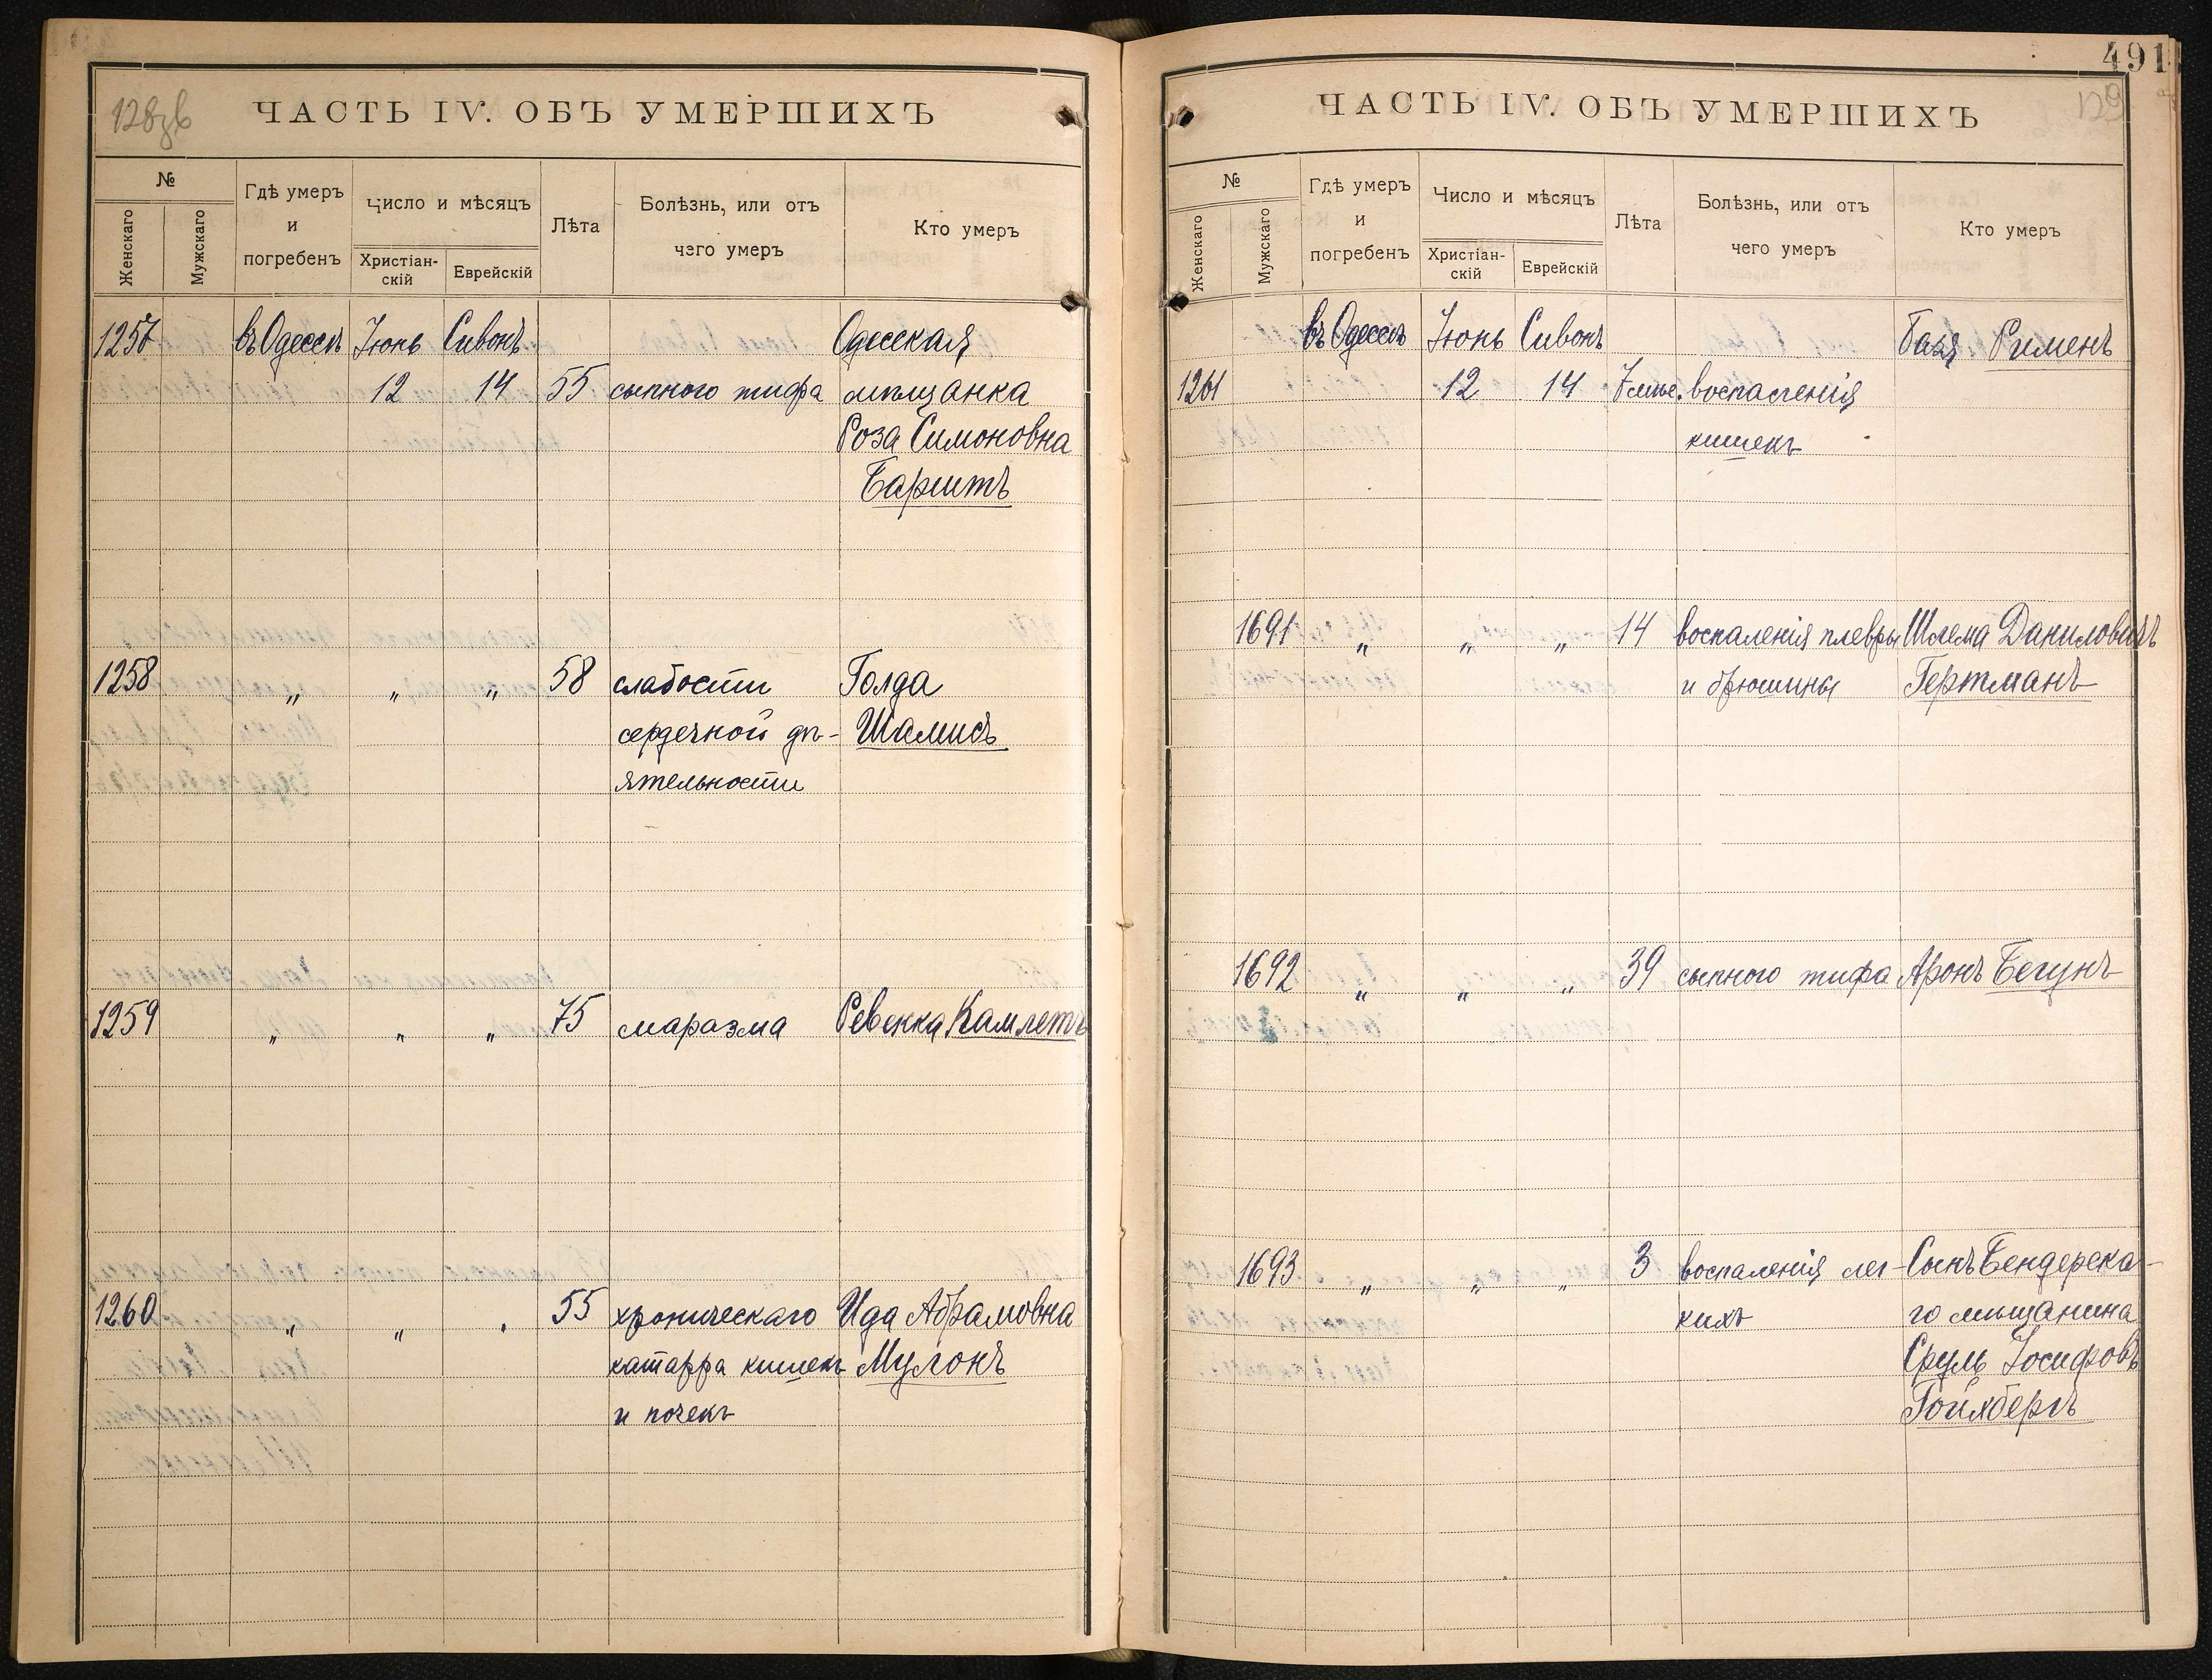 128об
ЧАСТЬ IV. ОБЪ УМЕРШИХЪ
№
Женскаго
Мужскаго
Гдѣ умеръ
и
погребенъ
Число и мѣсяцъ
Христіан-
скій
Еврейскій
Лѣта
Болѣзнь, или отъ
чего умеръ
Кто умеръ
1257 въ Одессѣ Іюнь Сивонъ Одесская
12 14 55 сыпного тифа мѣщанка
Роза Симоновна
Баритъ
1258 „ „ „ 58 слабости Голда
сердечной дѣ- Шамисъ
ятельности
1259 „ „ „ 75 маразма Ревекка Камлетъ
1260 „ „ „ 55 хроническаго Ида Абрамовна
катарра кишекъ Мулонъ
и почекъ
491
129
ЧАСТЬ IV. ОБЪ УМЕРШИХЪ
№
Женскаго
Мужскаго
Гдѣ умеръ
и
погребенъ
Число и мѣсяцъ
Христіан-
скій
Еврейскій
Лѣта
Болѣзнь, или отъ
чего умеръ
Кто умеръ
въ Одессѣ Іюнь Сивонъ Бася Рименъ
1261 12 14 7 воспаленія
кишекъ
1691 „ „ „ 14 воспаленія плевры Шлема Даниловичъ
и брюшины Гертманъ
1692 „ „ „ 39 сыпного тифа Аронъ Бегунъ
1693 „ „ „ 3 воспаленія лег- Сынъ Бендерска-
кихъ го мѣщанина
Сруль Іосифовъ
Гойхбергъ